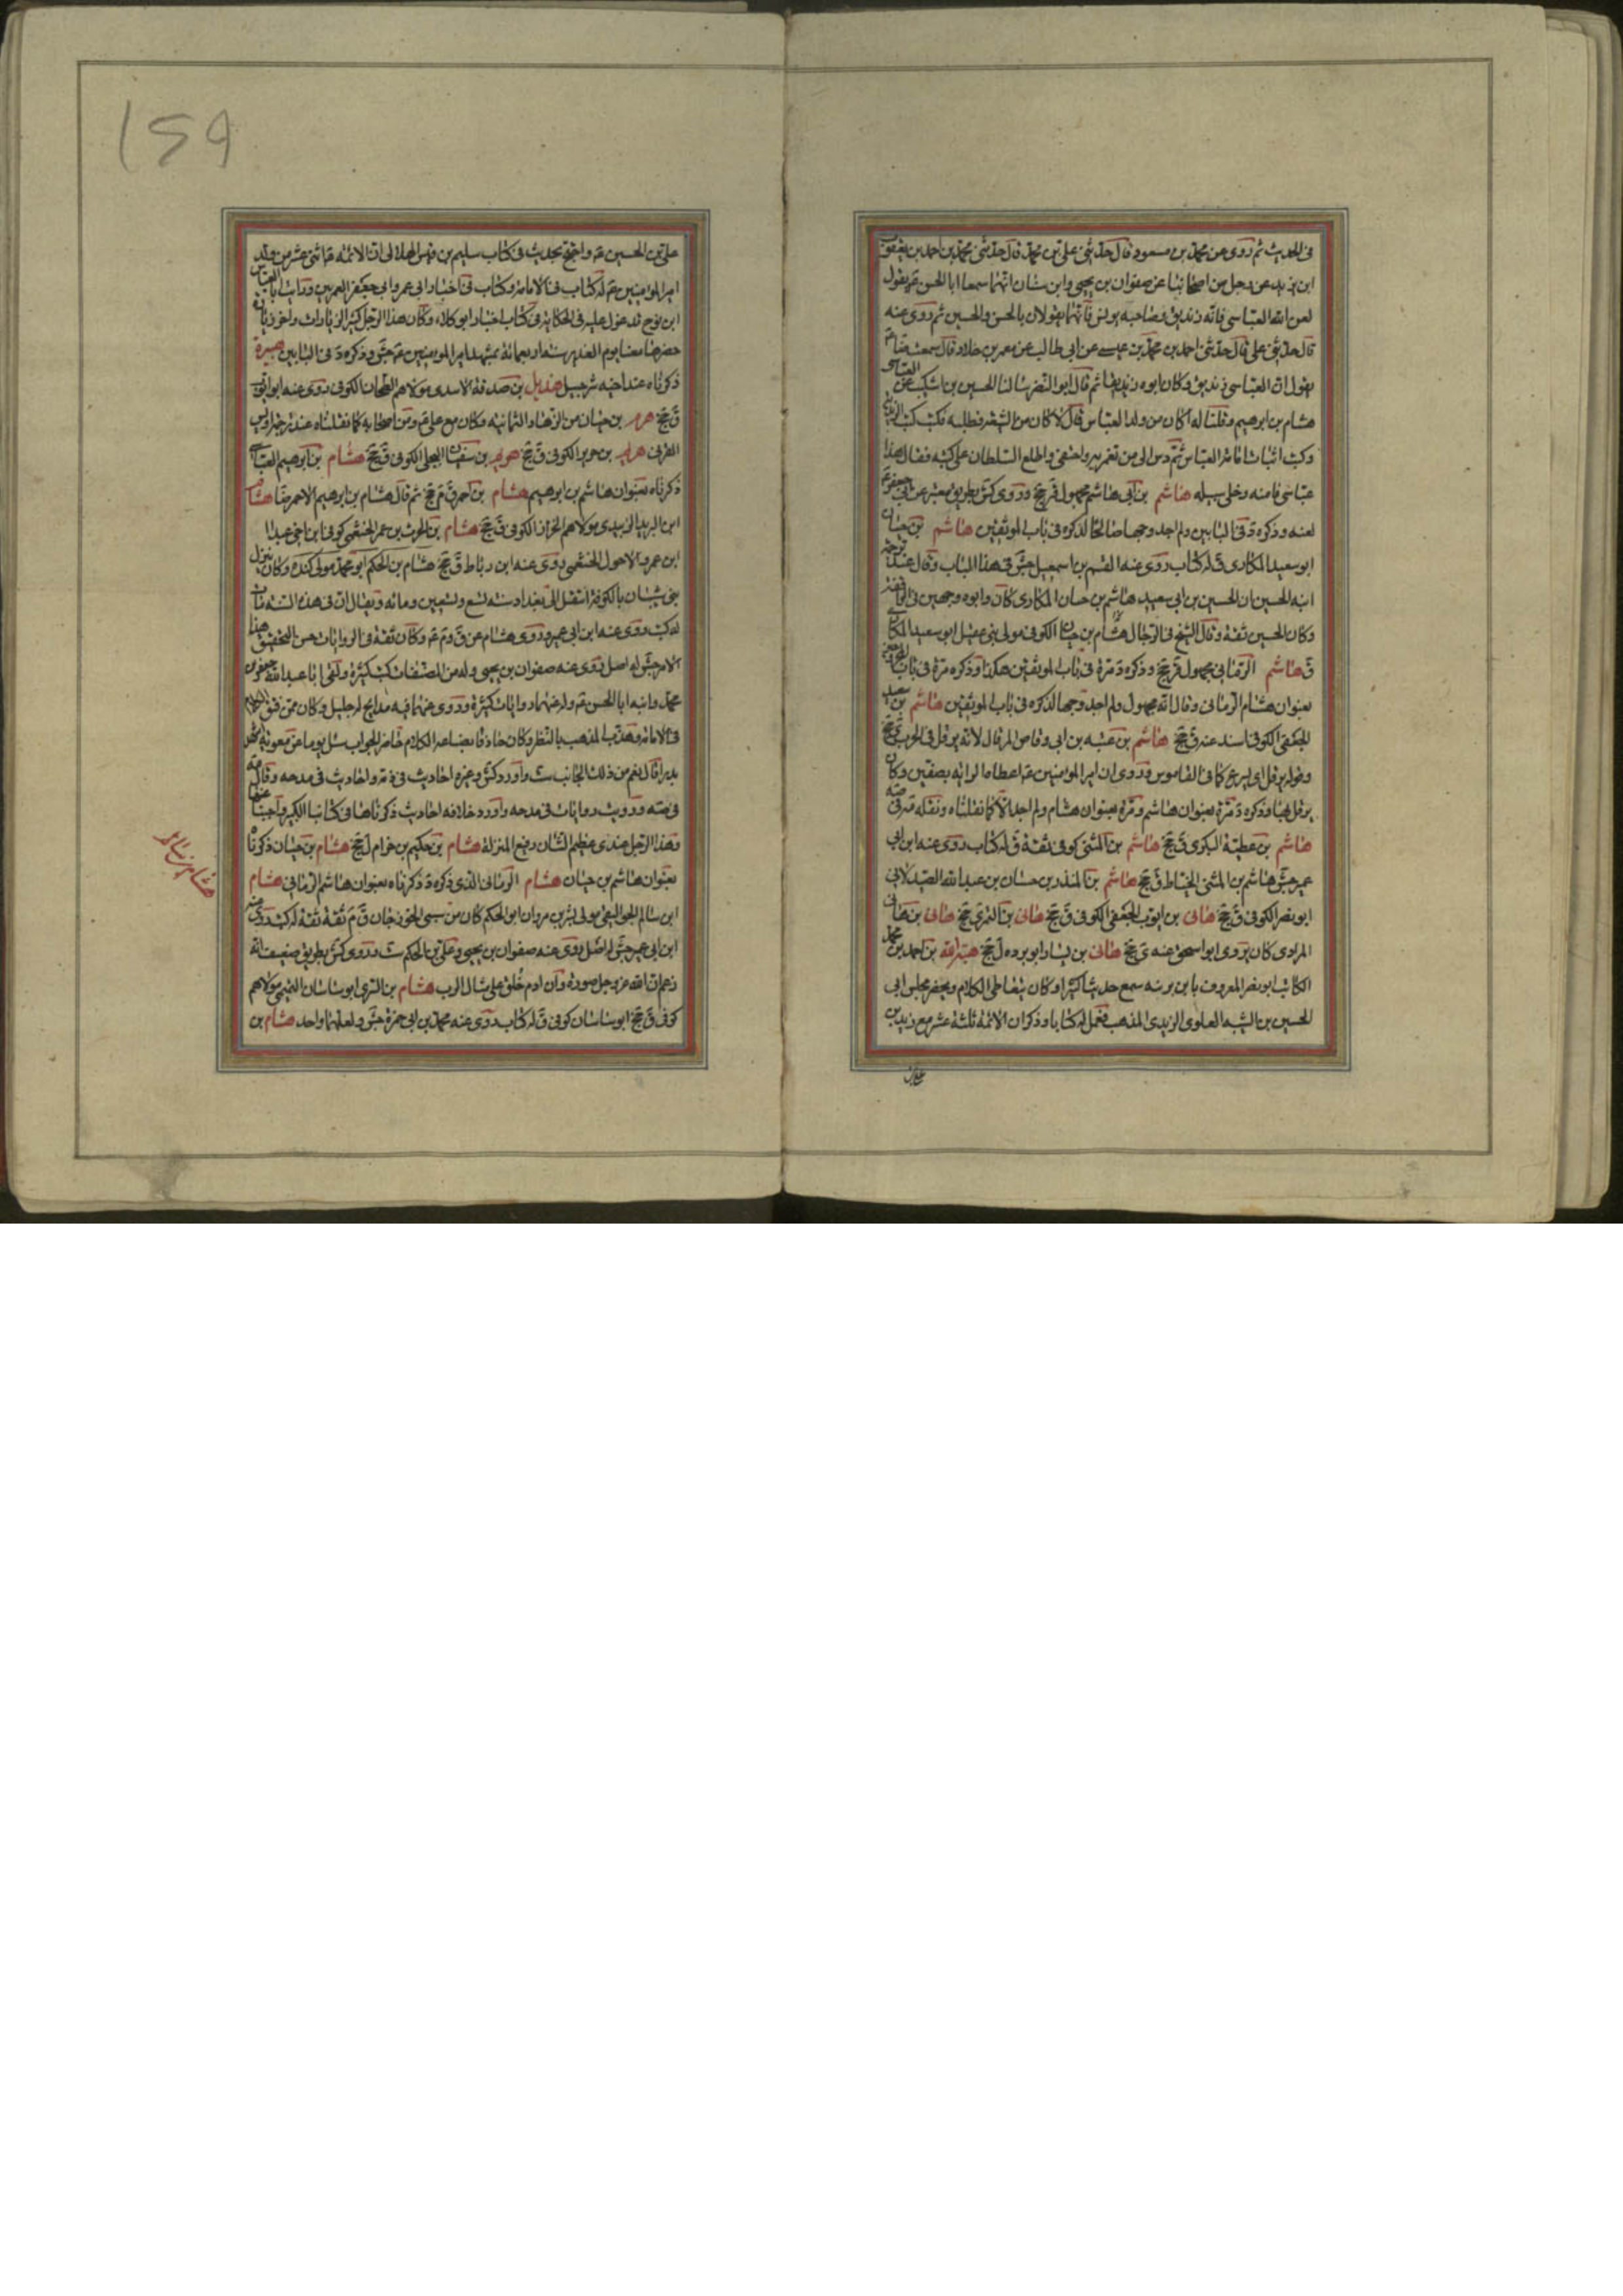 فى الحديث ثم روى عن محمد بن مسعود قال حدثنى على بن محمد قال حدثنى محمد بن احمد بن يعقوب
ابن يزيد عن رجل من اصحابنا عن صفوان بن يحيى وابن سنان انهما سمعا ابا الحسن عم يقول
لعن الله العباسى فانه زنديق وصاحبه يونس فانهما يقولان بالحسن والحسين ثم روى عنه
قال حدثنى على قال حدثنى احمد بن محمد بن عيسى عن ابى طالب عن معمر بن خلاد قال سمعت الرضا عم
يقول ان العباسى زنديق وكان ابوه زنديقا ثم قال ابو النضر سالنا الحسين بن اشكيب عن العباسى
هشام بن ابرهيم وقلنا له اكان من ولد العباس قال لا كان من الشيعة فطلبه فكتب كتب الزيدية
وكتب اثبات امامة العباس ثم دس الى من تغمز به واختفى واطلع السلطان على كتبه فقال هذا
عباسى فامنه وخلى سبيله هاشم بن ابى هاشم مجهول قر جخ وروى كش بطريق معتبر عن ابى جعفر عم
لعنه وذكره د فى البابين ولم اجد وجها صالحا لذكره فى باب الموثقين هاشم بن حيان
ابو سعيد المكارى ق له كتاب روى عنه القسم بن اسمعيل جش فى هذا الباب وقال عند ترجمة
ابنه الحسين ان الحسين بن ابى سعيد هاشم بن حيان المكارى كان وابوه وجهين فى الواقفة
وكان الحسين ثقة وقال الشيخ فى الرجال هشام بن حيان الكوفى مولى بنى عقيل ابو سعيد المكارى
ق هاشم الرمانى مجهول قر جخ وذكره د مرة فى باب الموثقين هكذا وذكره مرة فى باب المجروحين
بعنوان هشام الرمانى وقال انه مجهول ولم اجد وجها لذكره فى باب الموثقين هاشم بن سعيد
الجعفى الكوفى اسند عنه ق جخ هاشم بن عتبه بن ابى وقاص المرقال لانه يرقل فى الحرب ى جخ
وقوله يرقل اى يسرع كما فى القاموس وروى ان امير المومنين عم اعطاه لوائه بصفين وكان
يرقل بها وذكره د مرة بعنوان هاشم ومرة بعنوان هشام ولم اجد الا كما نقلناه ونقله مه فى صه
هاشم بن عطية البكرى ق جخ هاشم بن المثنى كوفى ثقة ق له كتاب روى عنه ابن ابى
عمير جش هاشم بن المثنى الخياط ق جخ هاشم بن المنذر بن حسان بن عبد الله الصيدلانى
ابو نصر الكوفى ق جخ هانى بن ايوب الجعفى الكوفى ق جخ هانى بن النمرى جخ هانى بن هانى
المرادى كان يروى ابو اسحق عنه ى جخ هانى بن نيار ابو برده ل جخ هبة الله بن احمد بن محمد
الكاتب ابو نصر المعروف بابن برنيه سمع حديثا كثيرا وكان يتعاطى الكلام ويحضر مجلس ابى
الحسين بن الشبيه العلوى الزيدى المذهب فعمل له كتابا وذكر ان الائمة ثلثة عشر مع زيد بن
على بن
على بن الحسين عم واحتج بحديث فى كتاب سليم بن قيس الهلالى ان الائمه عم اثنى عشر من ولد
امير المومنين عم له كتاب فى الامامة وكتاب فى اخبار ابى عمرو وابى جعفر العمريين ورايت ابا العباس
ابن نوح قد عول عليه فى الحكاية فى كتاب اخبار الوكلاء وكان هذا الرجل كثير الزيارات واخر زيارة
حضرها معنا يوم الغدير سنه اربعمائه بمشهد امير المومنين عم جش وذكره د فى البابين هبيرة
ذكرناه عند اخيه شرجيل هذيل بن صدقة الاسدى مولاهم الطحان الكوفى روى عنه ابو ايوب
ق جخ هرم بن حيان من الزهاد الثمانيه وكان مع على عم ومن اصحابه كما نقلناه عند ترجمة اويس
القرنى هرم بن حوير الكوفى ق جخ هريم بن سفيان البجلى الكوفى ق جخ هشام بن ابرهيم العباسى
ذكرناه بعنوان هاشم بن ابرهيم هشام بن احمر ق م جخ ثم قال هشام بن ابرهيم الاحمر ضا هشام
ابن البريد الزبيدى مولاهم الخراز الكوفى ق جخ هشام بن الحرث بن عمر الخثعمى كوفى ابن اخى عبد الله
ابن عمرو الاحول الخثعمى روى عنه ابن رباط ق جخ هشام بن الحكم ابو محمد مولى كنده وكان ينزل
بنى شيبان بالكوفة انتقل الى بغداد سنه تسع وتسعين ومائه ويقال ان فى هذه السنه مات
له كتب روى عنه ابن ابى عمير وروى هشام عن ق وم عم وكان ثقة فى الروايات حسن التحقيق بهذا
الامر جش له اصل روى عنه صفوان بن يحيى وله من المصنفات كتب كثيرة ولقى ابا عبد الله جعفر بن
محمد وابنه ابا الحسن عم وله عنهما روايات كثيرة وروى عنهما فيه مدايح له جليله وكان ممن فتق الكلام
فى الامامة وهذب المذهب بالنظر وكان حاذقا بصناعه الكلام حاضر الجواب سئل يوما عن معوية اشهد
بدرا قال نعم من ذلك الجانب ست واورد كش وغيره احاديث فى ذمه واحاديث فى مدحه وقال مه
فى صه ورويت روايات فى مدحه واورد خلافه احاديث ذكرناها فى كتابنا الكبير واجبنا عنها
وهذا الرجل عندى عظيم الشان رفيع المنزلة هشام بن حكيم بن حزام ل جخ هشام بن حيان ذكرناه
بعنوان هاشم بن حيان هشام الرمانى الذى ذكره د ذكرناه بعنوان هاشم الرمانى هشام
ابن سالم الجواليقى مولى بشر بن مروان ابو الحكم كان من سبى الجوزجان ق م ثقة ثقة له كتب روى عنه
ابن ابى عمير جش له اصل روى عنه صفوان بن يحيى وعلى بن الحكم ست وروى كش بطريق ضعيف انه
زعم ان الله عز وجل صورة وان ادم خلق على مثال الرب هشام بن السرى ابو ساسان التميمى مولاهم
كوفى ق جخ ابو ساسان كوفى ق له كتاب روى عنه محمد بن ابى حمزة جش ولعلهما واحد هشام بن
هشام بن سالم
159